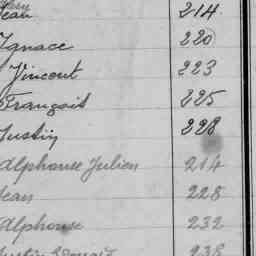 Jean 214.
Ignace 220
Vincent 223
François 225
Justin 228
Alphonse Julien 214
Jean 228
Alphonse 232
Justin 238